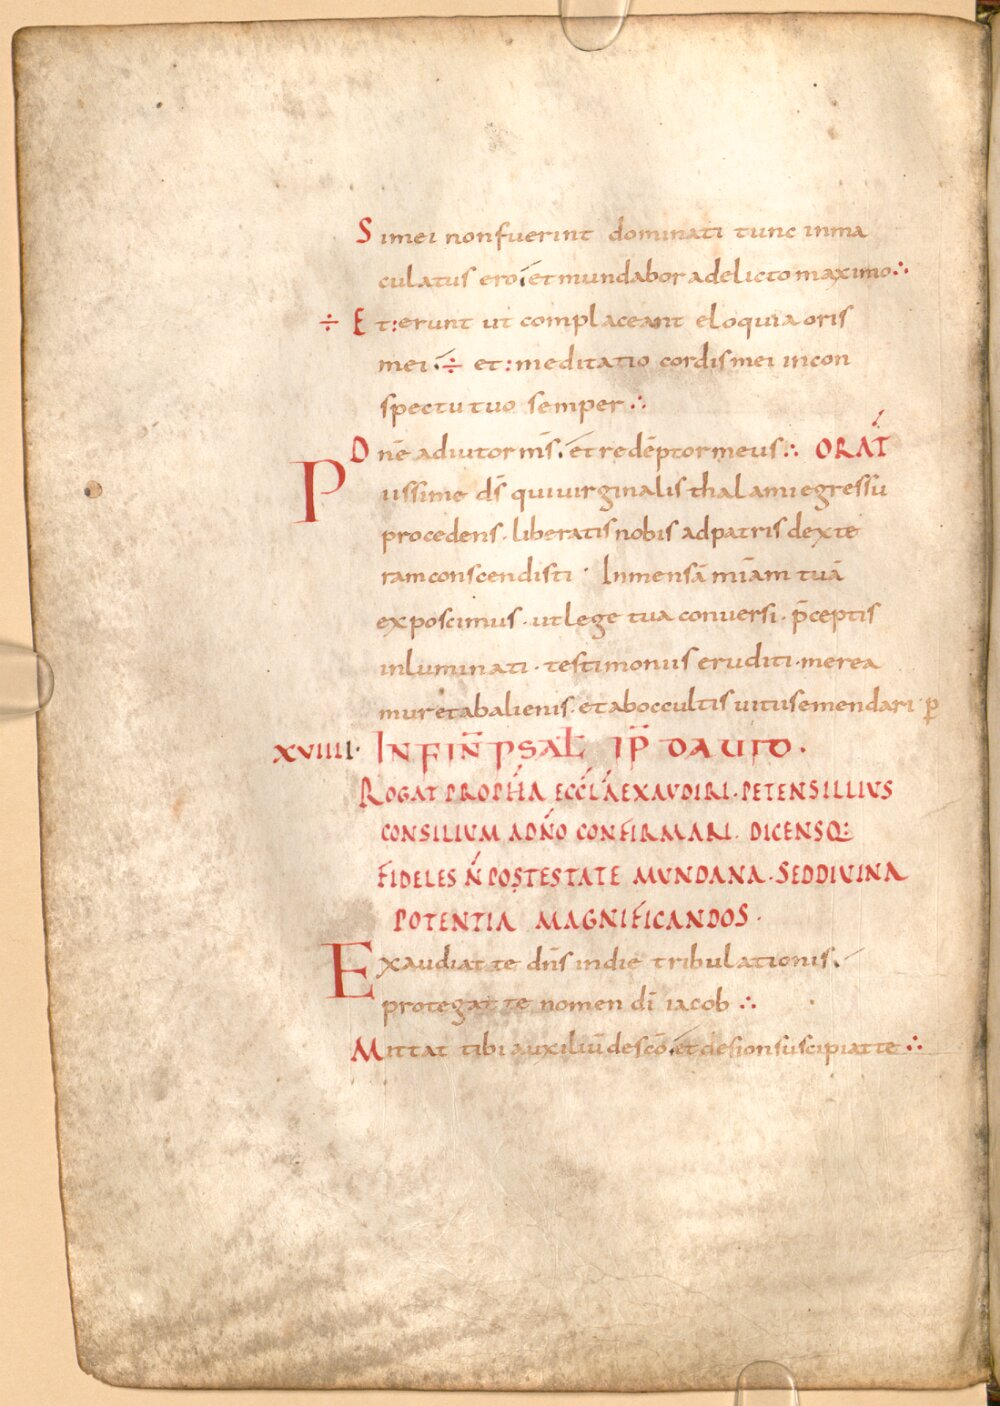 Simei non fuerint dominati tunc inma
culatus ero. et mundabor adelicto maximo∴
÷ Et:erunt ut complaceant eloquia oris
mei. ÷ et:meditatio cordis mei incon
spectu tuo semper∴
Dnē adiutor m̄s. et redēptor meus∴ ORAT̄
Piissime d̄s qui uirginalis thalami egressū
procedens. liberatis nobis ad patris dexte
ram conscendisti· Inmensā miām tuā
exposcimus. ut lege tua conuersi. p̄ceptis
inluminati. testimoniis eruditi. merea
mur et ab alienis. et ab occultis uitiis emendari· p̄
XVIIII· IN FIN̄ PSAL̄ IP̄ DAUID.
ROGAT PROPH̄A ECCL̄A EXAUDIRI. PETENS ILLIUS
CONSILIUM A DN̄O CONFIRMARI. DICENSQ:
FIDELES N̄ POSTESTATE MUNDANA. SED DIUINA
POTENTIA MAGNIFICANDOS.
Exaudiat te dn̄s in die tribulationis.
protegat te nomen dī iacob∴
Mittat tibi auxiliū de scō. et de sion suscipiat te∴